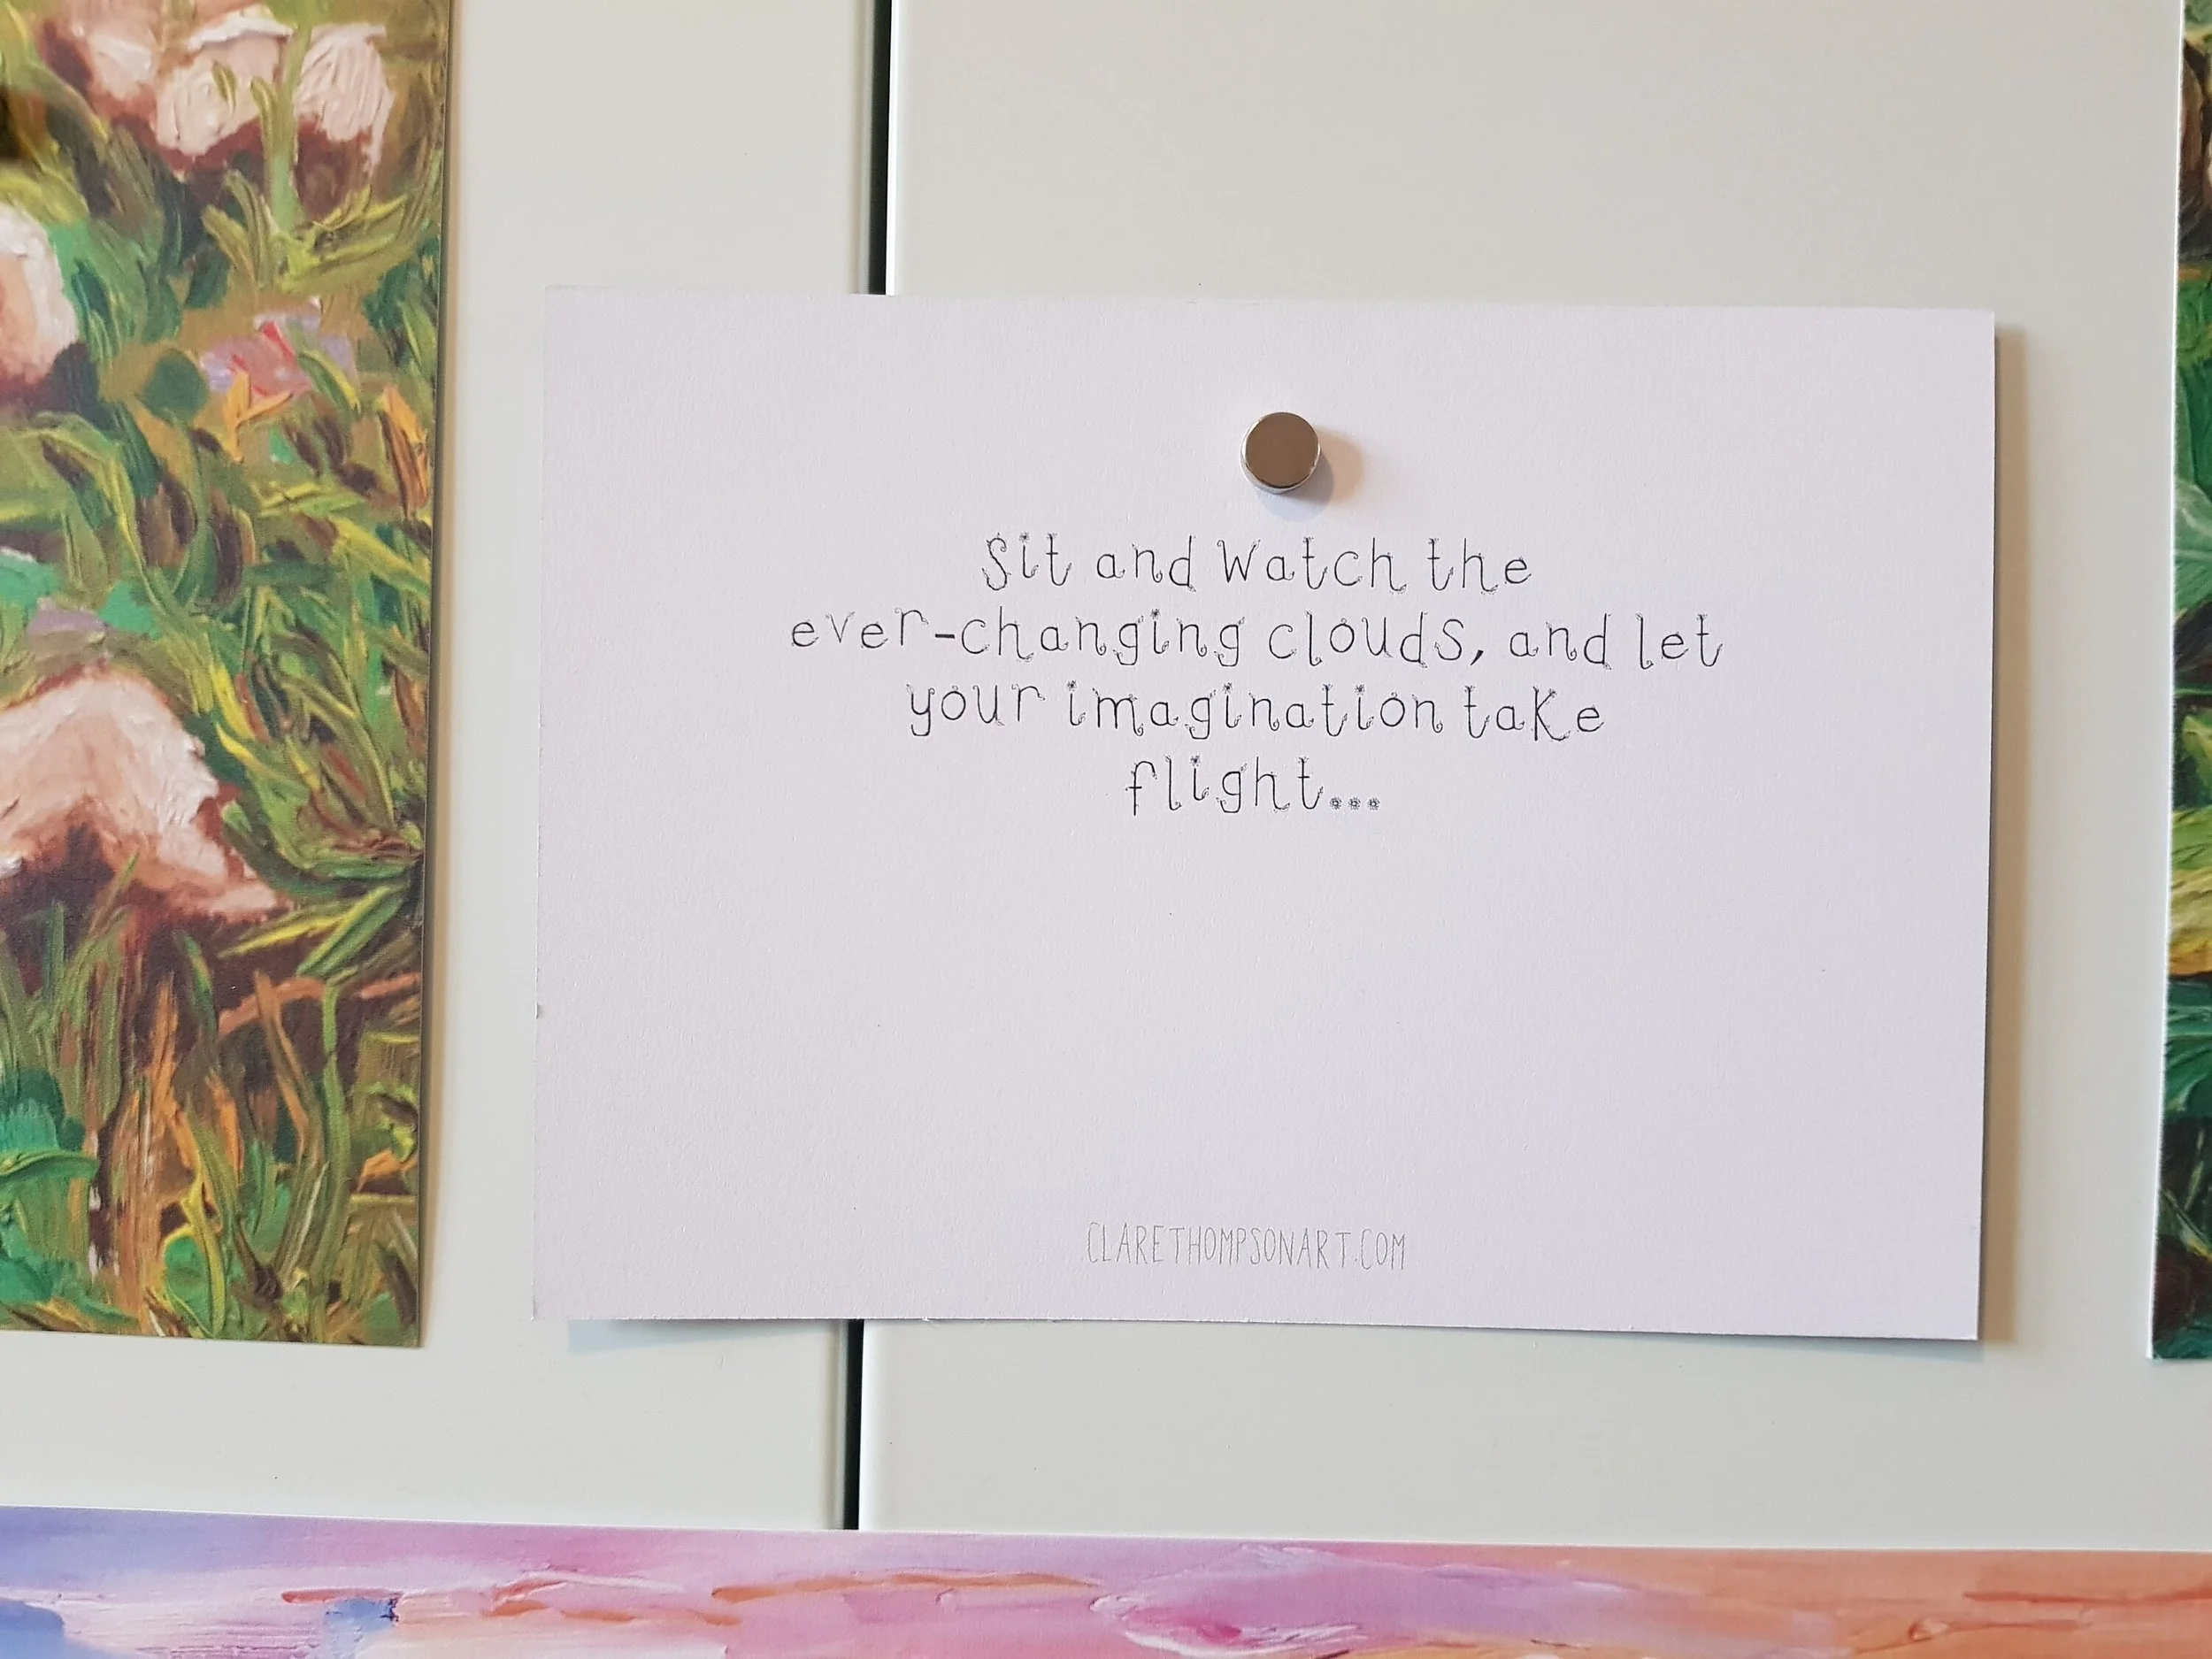 Sit and Watch the
ever-changing clouds, and let
your imagination take
flight...
CLARETHOMPSONART.COM